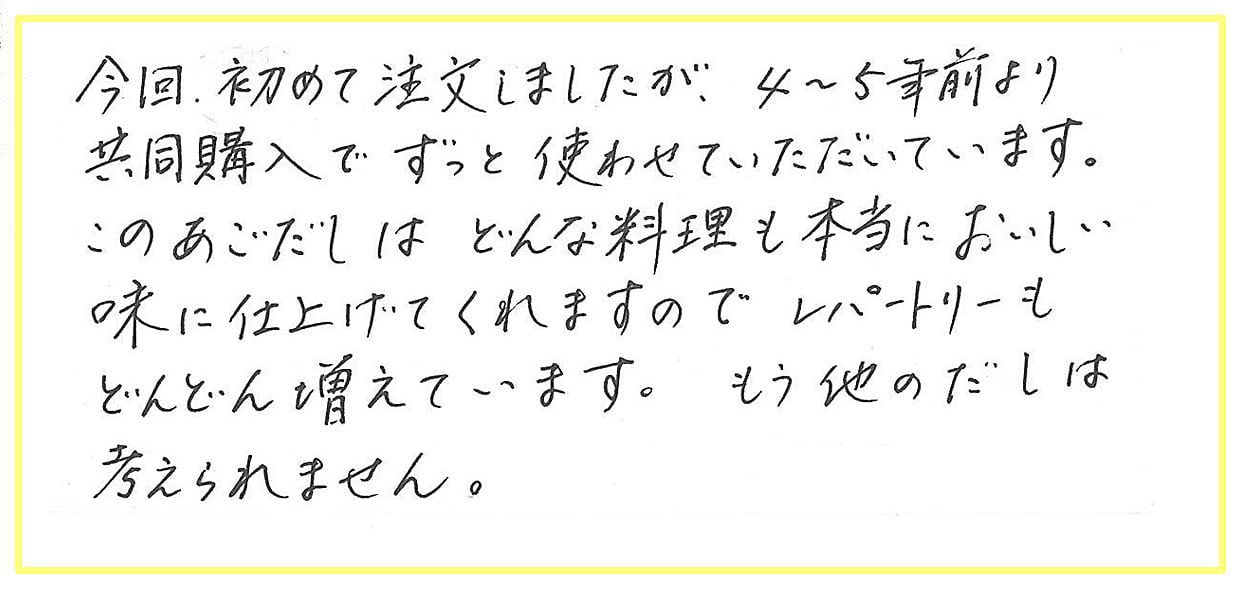 今回、初めて注文しましたが、4～5年前より
共同購入で ずっと 使わせていただいています。
このあごだしは どんな料理も本当に おいしい
味に仕上げてくれますので レパートリーも
どんどん増えています。 もう他のだしは
考えられません。